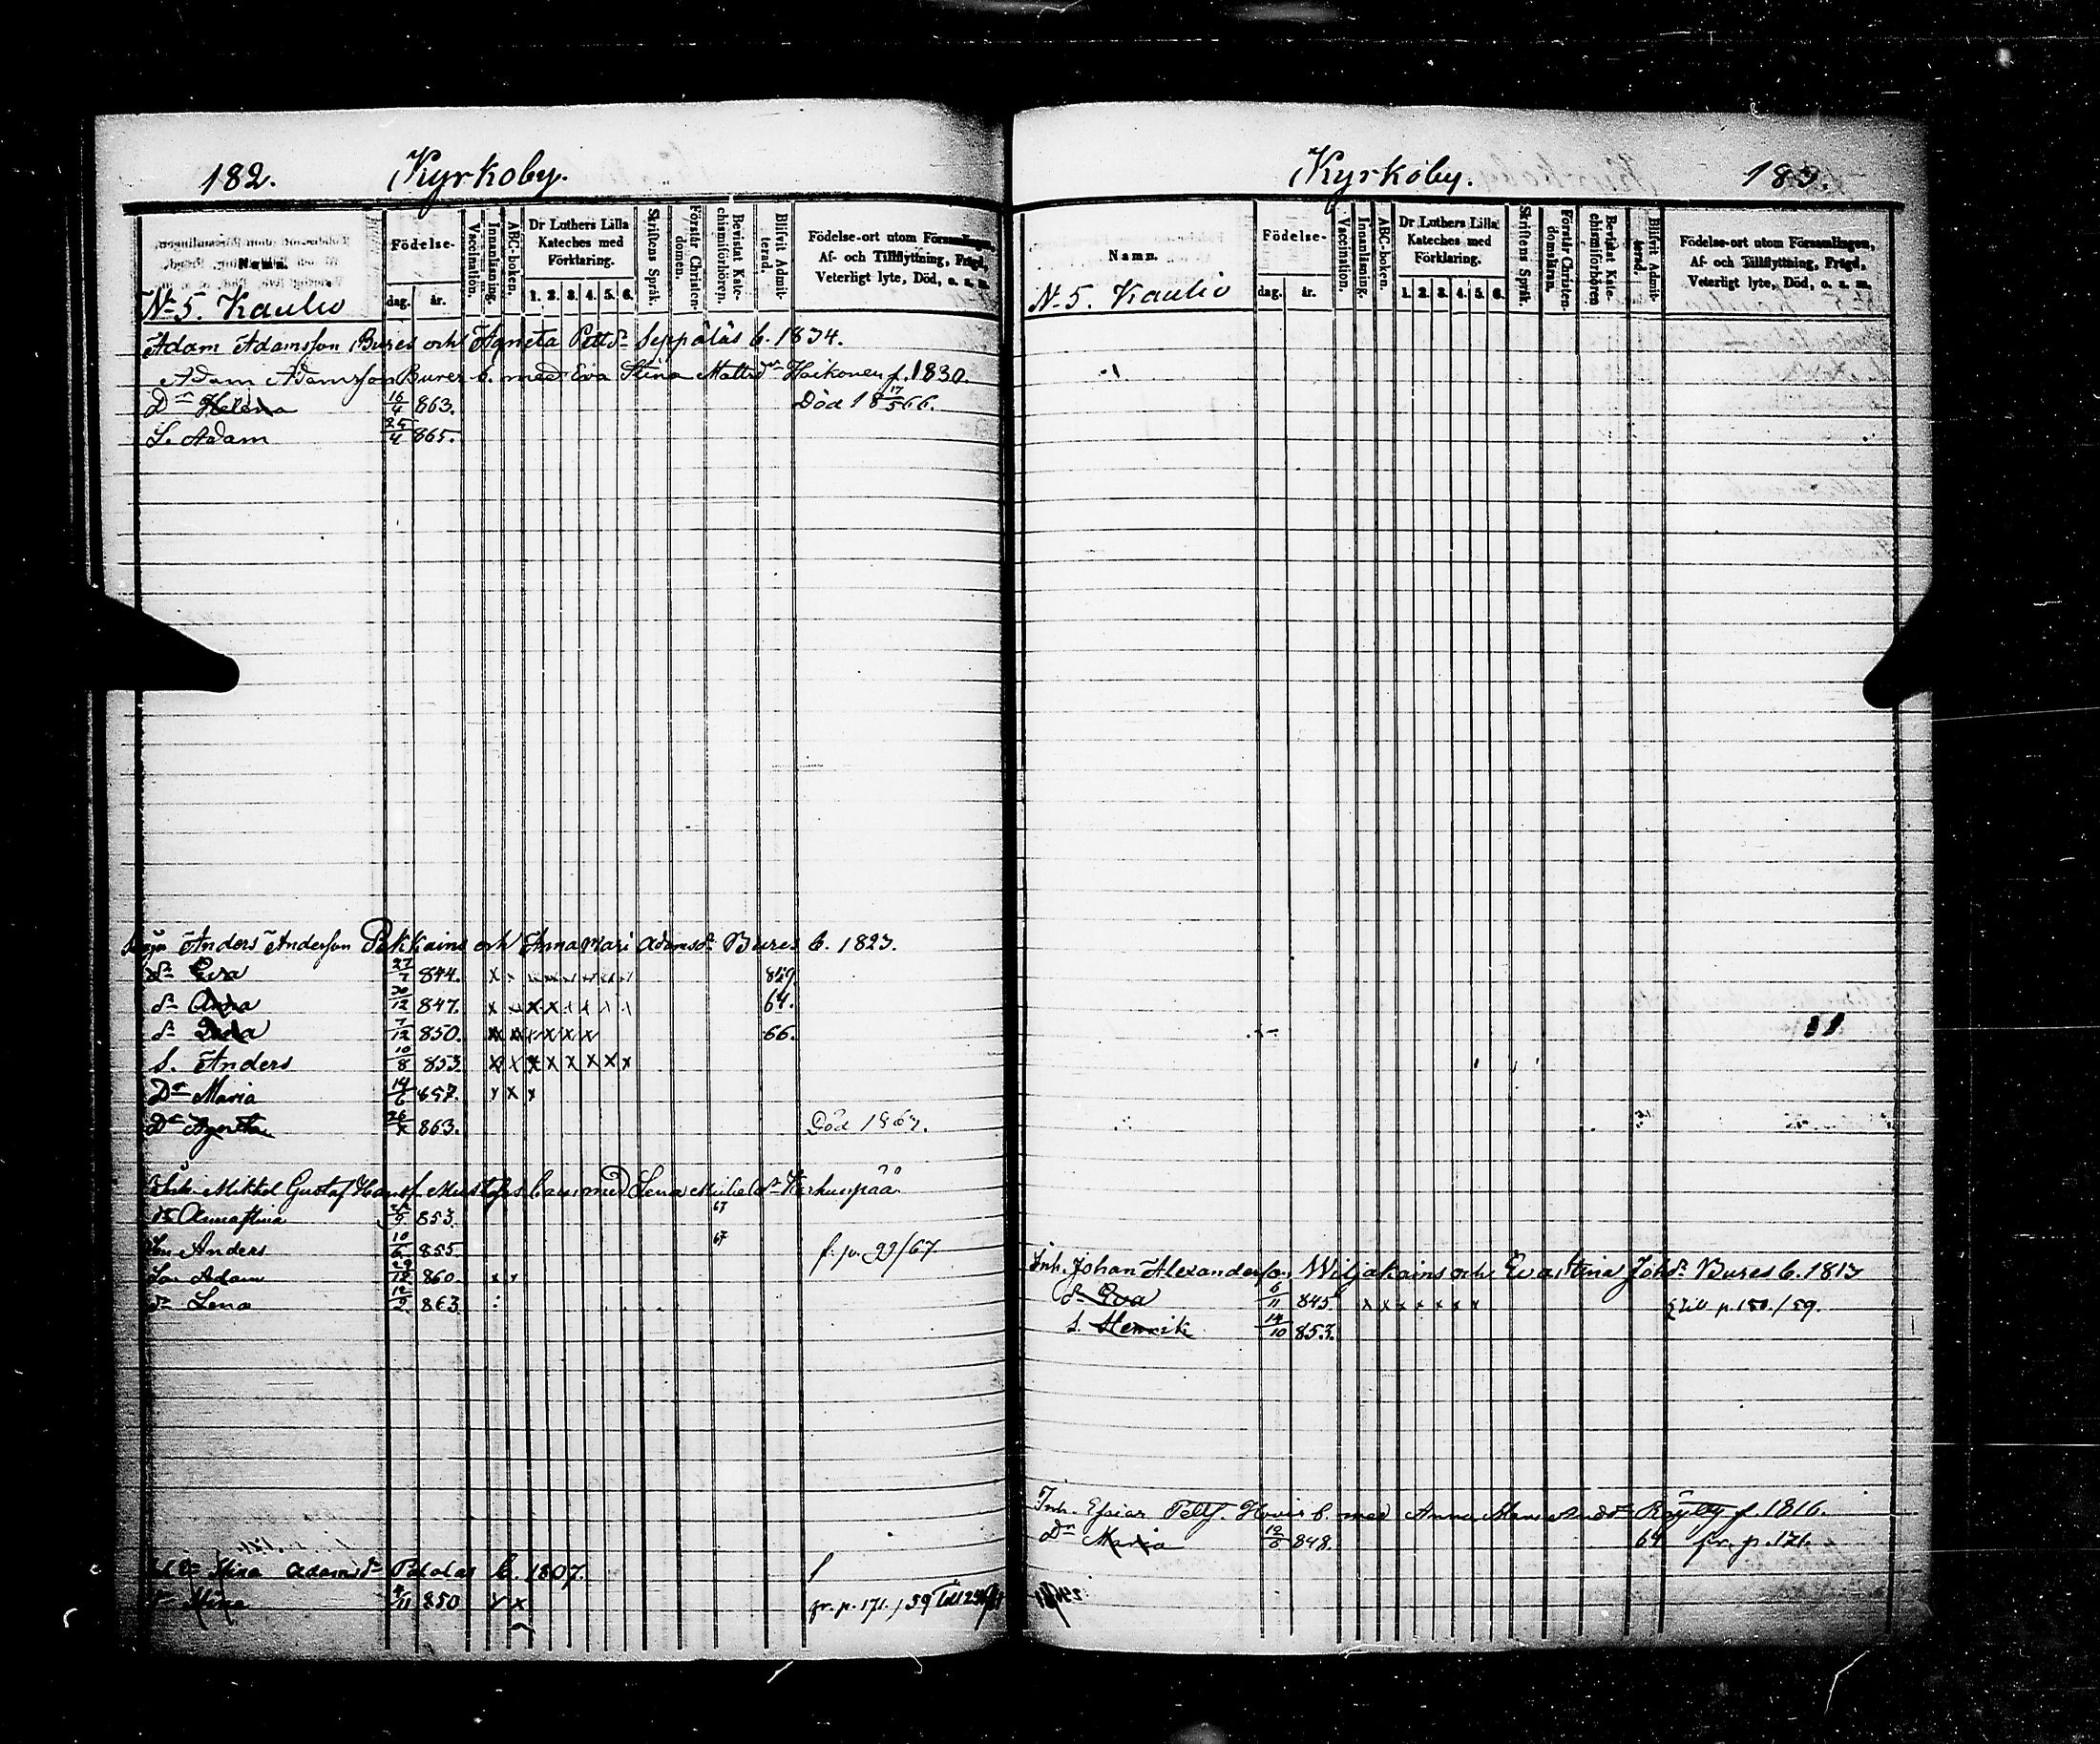 182. Kyrkoby.
Namn.
Födelse-
dag. år.
Vaccination.
Innanläsning.
ABC-boken.
Dr Luthers Lilla Kateches med Förklaring.
1. 2. 3. 4. 5. 6.
Skriftens Språk.
Förstår Christendomen.
Bevistat Katechismiförhören.
Blifvit Admitterad.
Födelse-ort utom Församlingen, Af- och Tillflyttning, Frägd, Veterligt lyte, Död, o. s. m.
No 5. Kaulio
Adam Adamsson Bures och Agneta Pettdr Seppäläs b. 1834.
Adam Adamsson Bures b. med Eva Stina Mattsdr Haikonen f. 1830.
Dr Helena 16/4 863. Död 18 17/5 66.
S. Adam 25/4 865.
Anders Andersson Pekkains och Annamari Adamsdr Bures b. 1823.
dr Eva 27/7 844. x 859
dr Anna 20/12 847. x x x x 64.
dr 7/12 850. x x x x x 66.
S. Anders 10/8 853 x x x x x x x x
Dr Maria 14/6 857. x x x
Dr Agneta 26/ 863. Död 1863.
Mikkel Gustaf Hansf. barn med Lena
67
dr Annastina 853.
Son Anders 10/6 855. 67 f. p. 99/67
Son Adam 29/12 860 x x
dr Lena 12/2 863
Stina Adamsdr b. 1807.
dr Stina 4/11 850 x x fr. p. 171. / 59
Kyrkoby. 183.
Namn.
Födelse-
dag. år.
Vaccination.
Innanläsning.
ABC-boken.
Dr Luthers Lilla Kateches med Förklaring.
1. 2. 3. 4. 5. 6.
Skriftens Språk.
Förstår Christendomsläran.
Bevistat Katechismiförhören
Blifvit Admitterad.
Födelse-ort utom Församlingen, Af- och Tillflyttning, Frägd, Veterligt lyte, Död, o. s. m.
No 5. Kaulio
Inh. Johan Alexandersson Wiljakains och Evastina Johdr Bures b. 1813
dr Eva 6/11 845 x x x x x x x till p. 150. / 59.
S. Henrik 14/10 853.
Inh. Esaias Pettf. b. med Anna f. 1816.
Dr Maria 12/8 848. 64 fr. p. 171.